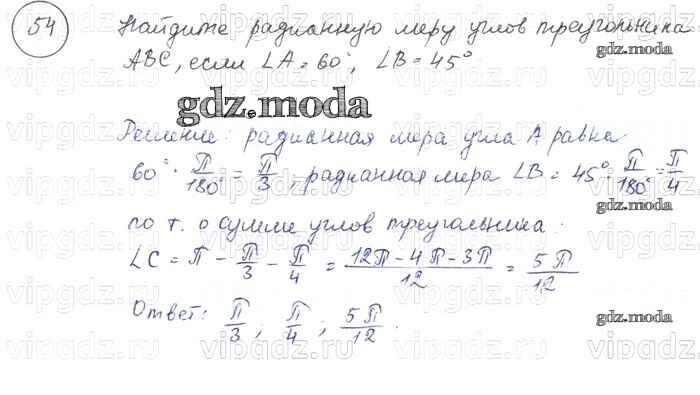 54 Найдите радианную меру углов треугольника
ABC, если ∠A = 60°, ∠B = 45°
gdz.moda
gdz.moda
Решение: радианная мера угла A равна
60° · π/180° = π/3, радианная мера ∠B = 45° · π/180° = π/4
gdz.moda
по т. о сумме углов треугольника:
∠C = π - π/3 - π/4 = (12π - 4π - 3π)/12 = 5π/12
Ответ: π/3, π/4; 5π/12.
gdz.moda
vipgdz.ru vipgdz.ru vipgdz.ru vipgdz.ru